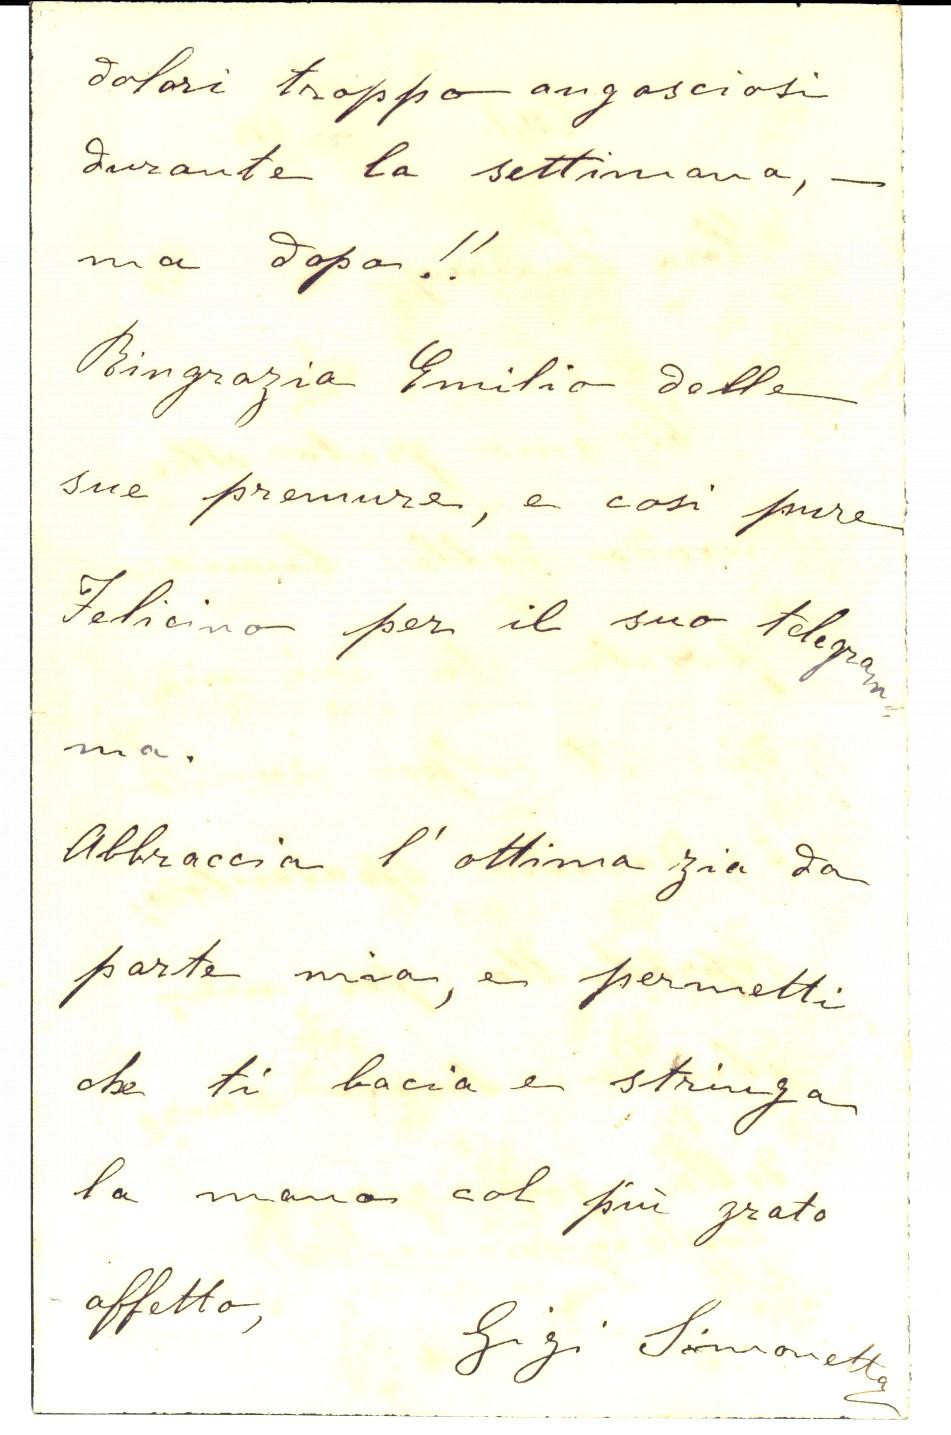 dolori troppo angosciosi
durante la settimana, —
ma dopo!!
Ringrazia Emilio delle
sue premure, e così pure
Felicino per il suo telegram=
ma.
Abbraccia l'ottima zia da
parte mia, e permetti
che ti bacia e stringa
la mano col più grato
affetto,
Gigi Simonetta